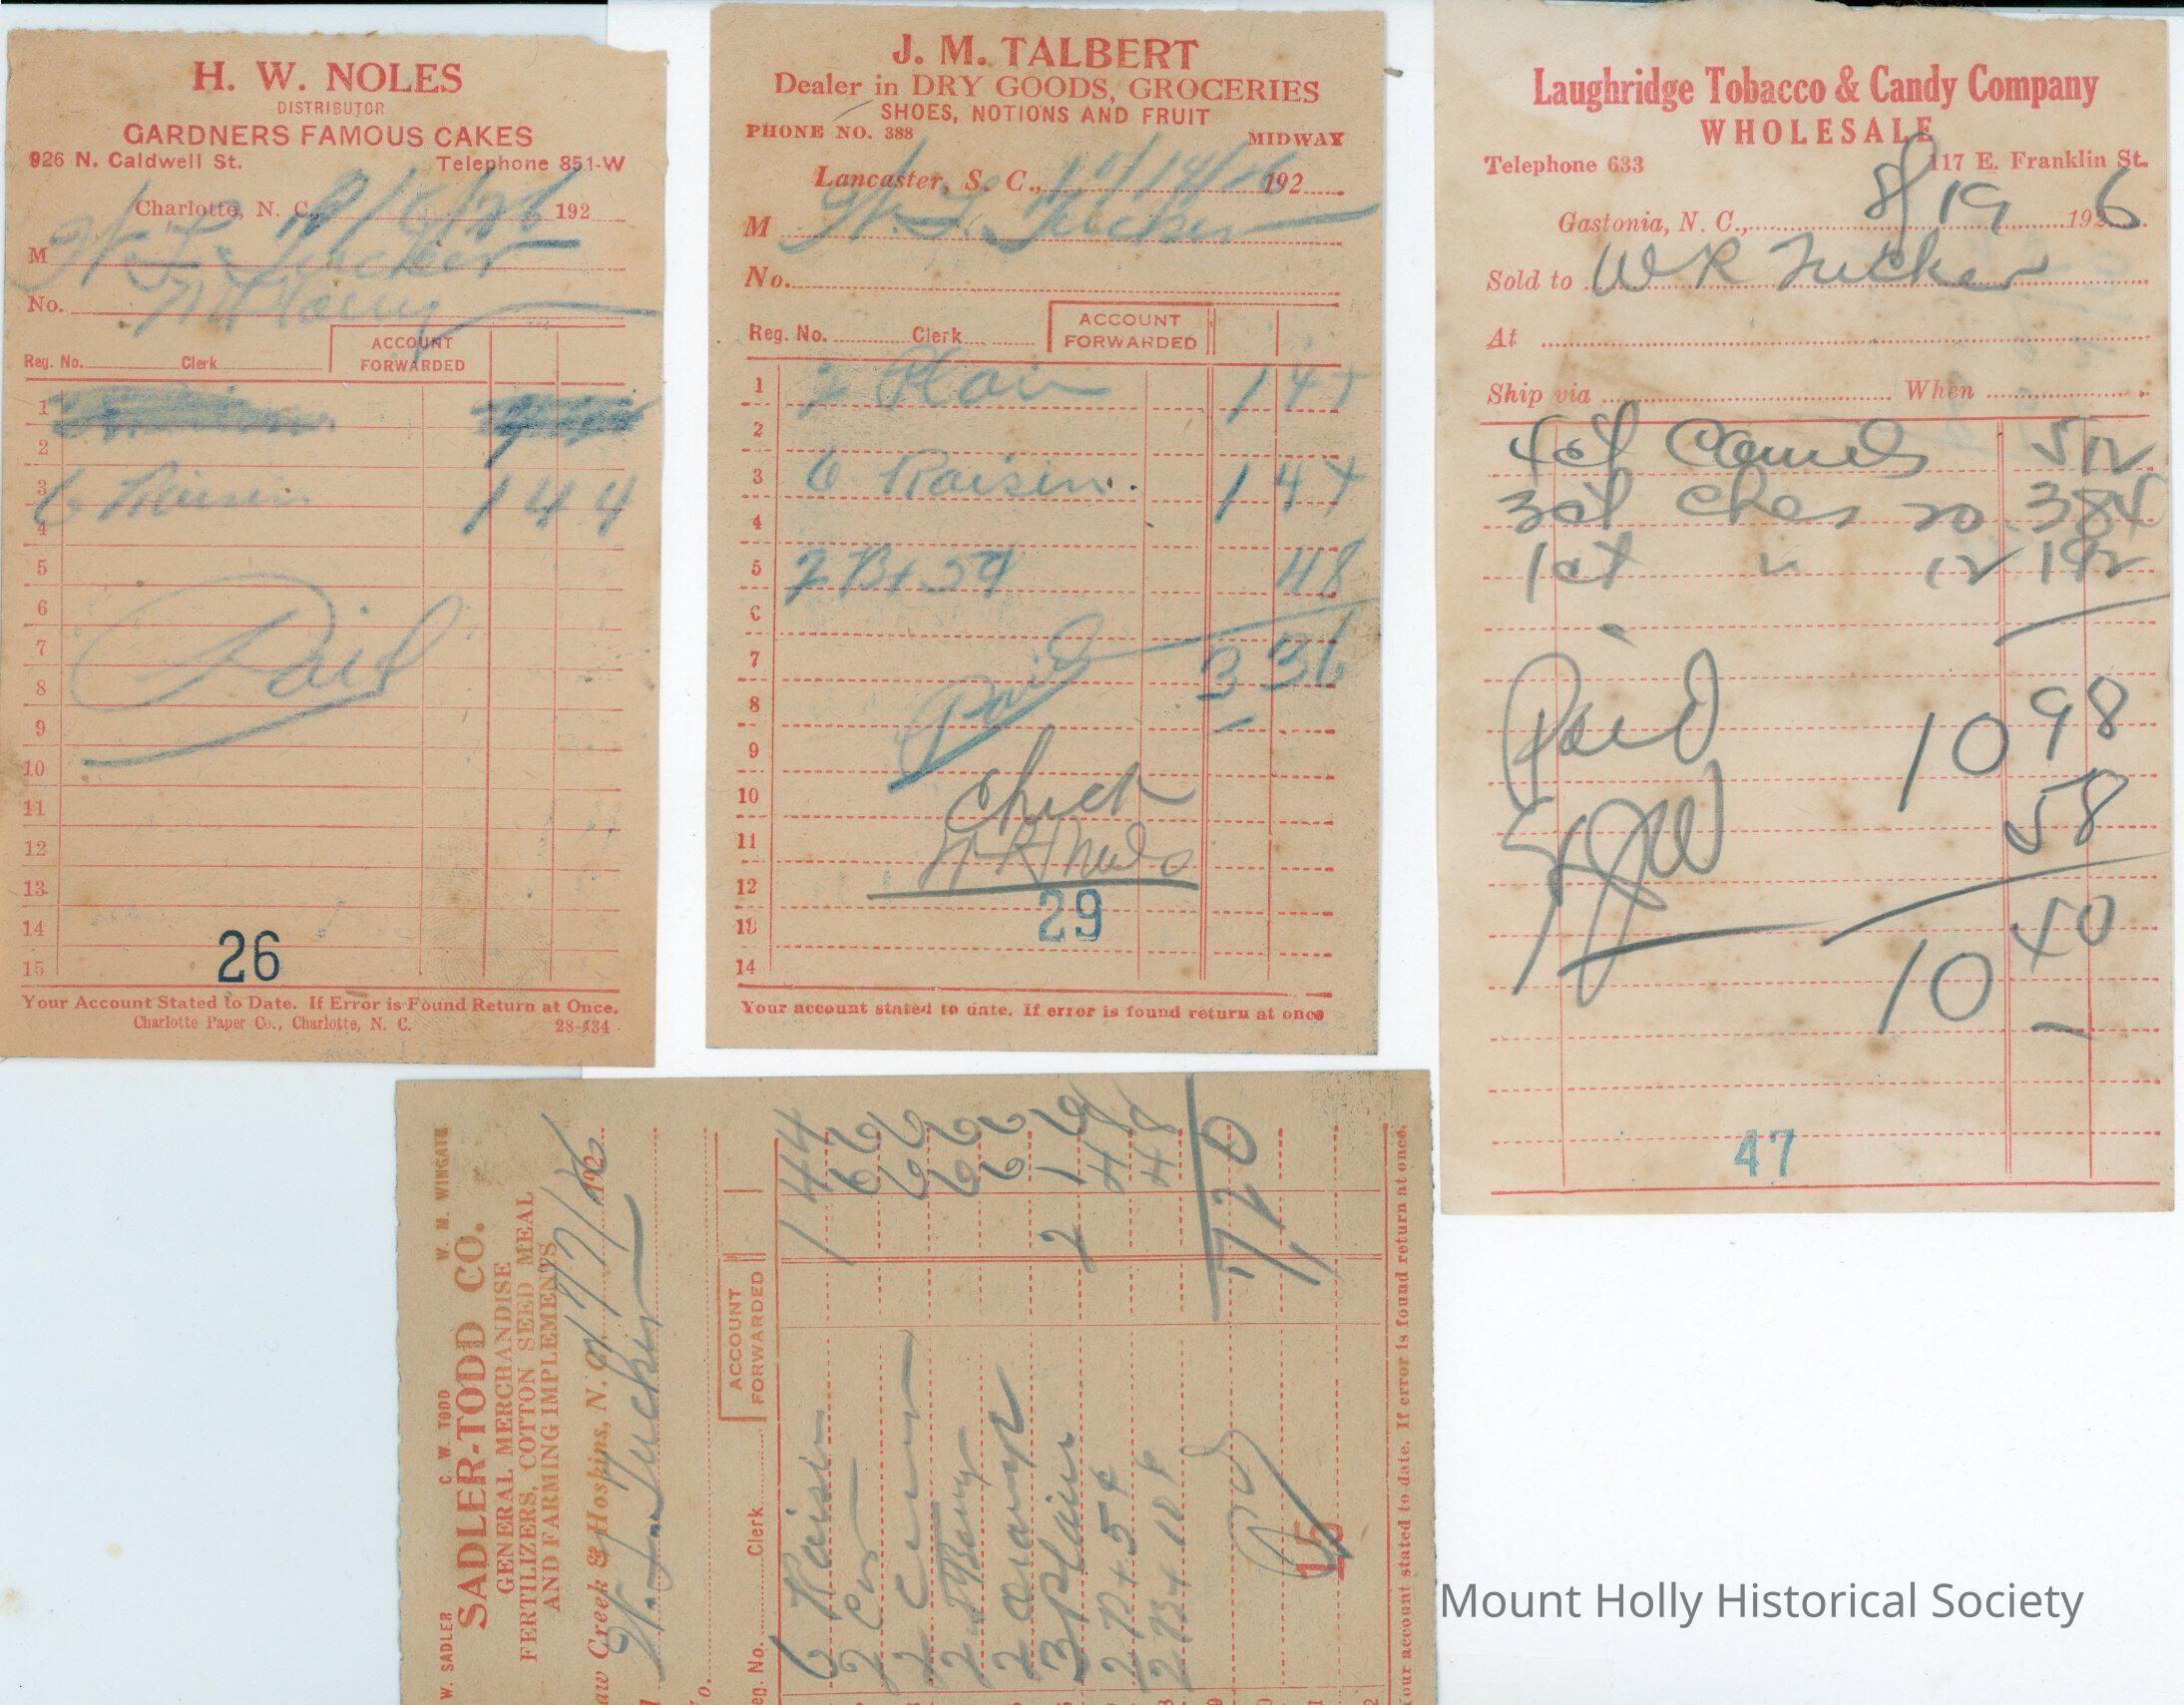 H. W. NOLES
DISTRIBUTOR
GARDNERS FAMOUS CAKES
926 N. Caldwell St. Telephone 851-W
Charlotte, N. C. 192
M Tucker
No. Mt Holly
ACCOUNT
FORWARDED
Reg. No. Clerk
1
2
3 6 Raisin 1 44
4
5
6
7 Paid
8
9
10
11
12
13
14
15
26
Your Account Stated to Date. If Error is Found Return at Once,
Charlotte Paper Co., Charlotte, N. C. 28-434
J. M. TALBERT
Dealer in DRY GOODS, GROCERIES
SHOES, NOTIONS AND FRUIT
PHONE NO. 388 MIDWAY
Lancaster, S. C., 10/14/26 192
M Tucker
No.
ACCOUNT
FORWARDED
Reg. No. Clerk
1 Plain 1 44
2
3 6 Raisin 1 44
4
5 2 Bx 5¢ 48
6
7 3 36
8 Paid
9
10 Check
11
12
13
14
29
Your account stated to date. If error is found return at once
Laughridge Tobacco & Candy Company
WHOLESALE
Telephone 633 117 E. Franklin St.
Gastonia, N. C., 8/19 1926
Sold to W R Tucker
At
Ship via When
Camels 5 12
Ches 20 3 84
12 1 92
Paid 10 98
58
10 40
47
W. SADLER C. W. TODD W. M. WINGATE
SADLER-TODD CO.
GENERAL MERCHANDISE
FERTILIZERS, COTTON SEED MEAL
AND FARMING IMPLEMENTS
aw Creek & Hoskins, N. C. 192
Tucker
No.
ACCOUNT
FORWARDED
eg. No. Clerk
6 Raisin 1 44
2 66
2 66
2 66
2 Orange 66
3 Plain 2 16
2 Bx 5¢ 48
2 Bx 10¢ 48
7 20
15
our account stated to date. If error is found return at once.
Mount Holly Historical Society